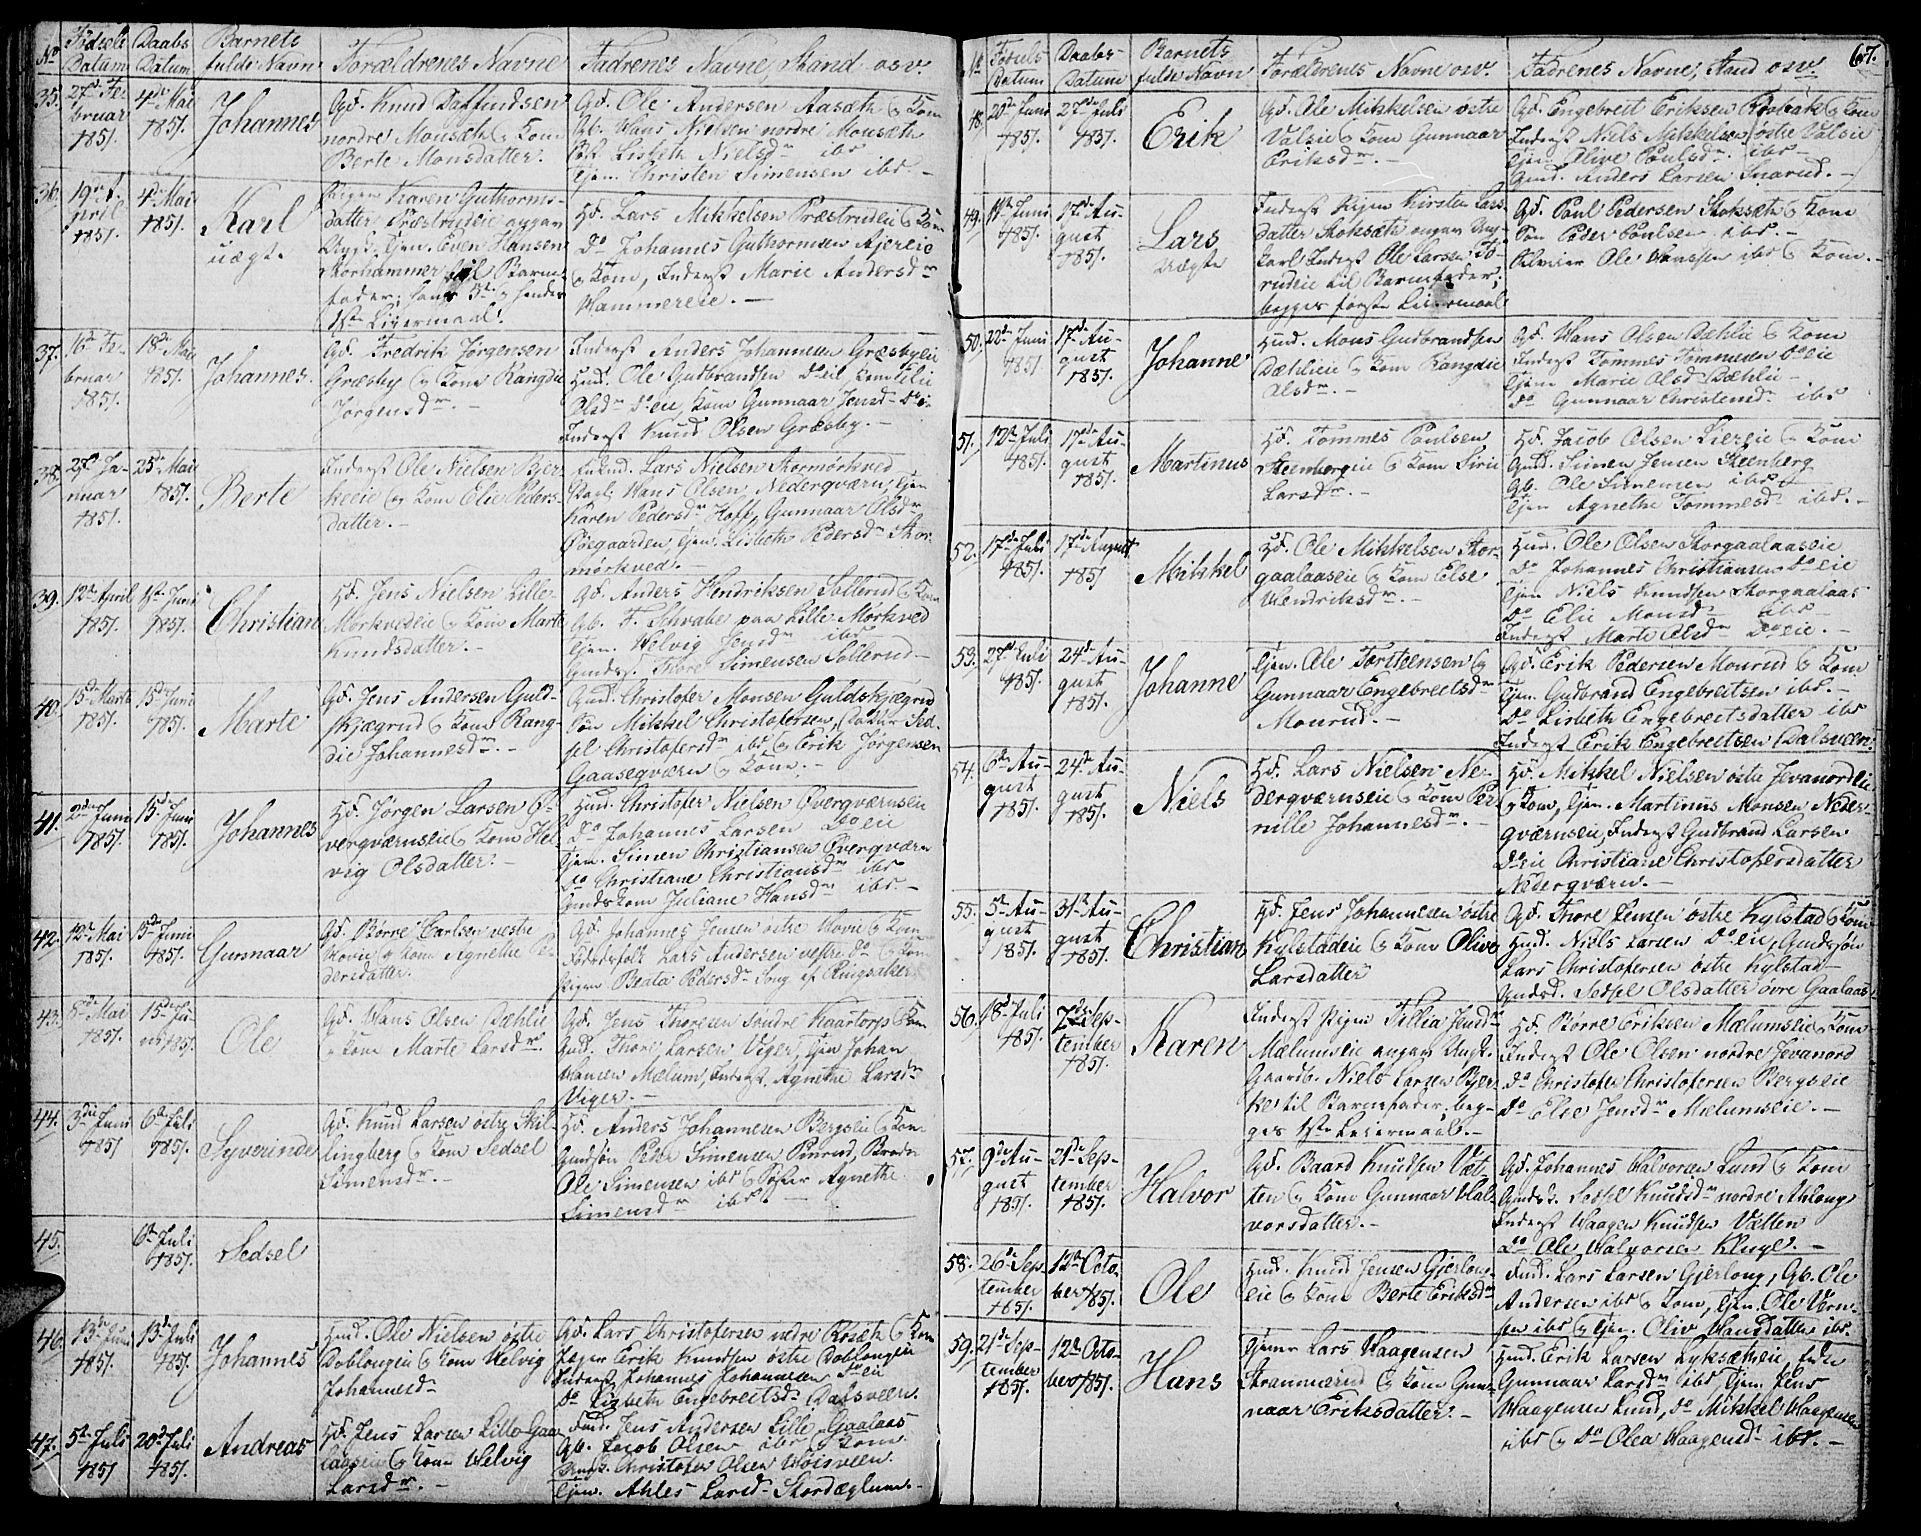 No Fødsels Datum
Daabs Datum
Barnets fulde Navn
Forældrenes Navne
Fadrenes Navne, Stand osv.
35. 27de Februar 1851.
4de Mai 1851.
Johannes
Gd. Knud Daffindsen
nordre Monsæth og Kone
Berte Monsdatter.
Gd. Ole Andersen Aasæth og Kone
Gb. Hans Nielsen nordre Monsæth
Pig. Lisbeth Nielsdr ibd
Tjen. Christen Simensen ibd. —
36. 19de April 1851.
4de Mai 1851.
Karl
uægt.
Pigen Karen Guthorms-
datter Præstrudeie angav
Ungk. Tjen. Even Hansen
Storhammer til Barne-
fader; hans 3de og hendes
1ste Leiermaal.
Hd. Lars Mikkelsen Præstrudeie og Kone
Do Johannes Guthormsen Ajereie
og Kone, Inderst Marie Andersdr
Hammereie. —
37. 16de Februar 1851.
18de Mai 1851.
Johannes.
Gd. Fredrik Jørgensen
Græsby og Kone Rangdie
Jørgensdr. —
Inderst Anders Johannesen Græsbyeie
Hud. Ole Gudbrandsen Doeie Kone Elie
Olsdr Doeie, Kone Gunnaar Jensd. Do
Inderst Knud Olsen Græsby. —
38. 27de Januar 1851.
25de Mai 1851.
Berte
Inderst Ole Nielsen Bjer-
keeie og Kone Elie Peders-
datter. —
Lars Nielsen Stormørkved
Karl, Hans Olsen, Nederqværn, Tjen
Karen Pedersdr Hoff, Gunnaar Olsdr
Poegaarden, Tjen. Lisbeth Pedersdr Stor-
mørkved. —
39. 12te April 1851.
1ste Juni 1851.
Christian
Hd. Jens Nielsen Lille-
Mørkvedeie og Kone Marte
Knudsdatter. —
Gd. Anders Hendriksen Sollerud og Kone
Gb. F. Schrabe paa Lille Mørkved
Tjen. Helvig Jensdr ibd
Thore Simensen Sollerud —
40. 15de Marts 1851.
15de Juni 1851.
Marte
Gd. Jens Andersen Guld-
skjægrud og Kone Rang-
die Johannesdr. —
Gud. Christofer Monsen Guldskjægrud
Søn Mikkel Christofersen, Sed-
sel Christofersdr ibd og Erik Jørgensen
Gaaseqværn og Kone. —
41. 2den Juni 1851.
15de Juni 1851.
Johannes
Hd. Jørgen Larsen Ø-
verqværnseie og Kone Hel-
vig Olsdatter. —
Hud. Christofer Nielsen Øverqværnseie
Do Johannes Larsen Doeie
Tjen. Simen Christiansen Øverqværn
Do Christiane Christiansdr ibd
Kone Juliane Hansdr ibd. —
42. 12te Mai 1851.
15de Juni 1851.
Gunnaar
Gd. Børre Carlsen vestre
Hovie og Kone Agnethe Pe-
dersdatter.
Gd. Johannes Jensen østre Hovie og Kone
Lars Andersen vestre Do og Kone
Pigen Beata Pedersdr Song af Ringsaker
43. 8de Mai 1851.
15de Juni 1851.
Ole
Gd. Hans Olsen Dæhlie
og Kone Marte Larsdr.
Gd. Jens Thoresen søndre Kaartorp og Kone
Gud. Thore Larsen Viger, Tjen Johan
Hansen Mælum, Inderst, Agnethe Larsdr
Viger. —
44. 3die Juni 1851
6te Juli 1851.
Syverinde
Gd. Knud Larsen østre Skil-
lingberg og Kone Sedsel
Simensdr. —
Hd. Anders Johannesen Bergseie og Kone
Gundsøn Peder Simensen Pinrud, Broder
Ole Simensen ibd og Søster Agnethe
Simensdr ibd —
45.
6te Juli 1851.
Sedsel
46. 13de Juni 1851.
13de Juli 1851.
Johannes
Hud. Ole Nielsen østre
Doblougeie og Kone Helvig
Johannesdr
Gd. Lars Christofersen nedre Kosæth og Kone
Erik Knudsen østre Doblougeie
Inderst Johannes Johannesen Doeie
Do Lisbeth Engebretsd. Dalsveen.
47. 5te Juli 1851
20de Juli 1851.
Andreas
Hd. Jens Larsen Lille Gaa-
laaseie og Kone Helvig
Larsdr. —
Fud. Jens Andersen Lille Gaalaas
Gb. Jacob Olsen ibd og Kone
Christofer Olsen Høisveen.
Tjen. Ahles Larsd. Stordæglum. —
67.
No Fødsels Datum
Daabs Datum
Barnets fulde Navn
Forældrenes Navne osv.
Fadrenes Navne, Stand osv.
48. 20de Juni 1851.
27de Juli 1851.
Erik
Gd. Ole Mikkelsen østre
Valseie og Kone Gunnaar
Eriksdr. —
Gd. Engebret Eriksen og Kone
Inderst Niels Mikkelsen østre Valseie
Tjen. Olive Poulsdr. ibd —
Gud. Anders Larsen Snarud. —
49. 11te Juni 1851.
17de August 1851.
Lars
uægte
Inderst Pigen Kirsten Lars-
datter Stoksæth angav Ung-
karl Inderst Ole Larsen
rudeie til Barnefader;
begges første Leiermaal
Gd. Poul Pedersen Stoksæth og Kone
Søn Peder Poulsen ibd. —
Ole Hansen ibd og Kone. —
50. 22de Juni 1851
17de August 1851.
Johanne
Hud. Mons Gudbrandsen
Dæhlieie og Kone Rangdie
Olsdr. —
Gd. Hans Olsen Dæhlie og Kone
Inderst Tommes Tommesen Doeie
Tjen Marie Olsd Dæhlie —
Do Gunnaar Christensd. ibd
51. 12te Juli 1851.
17de August 1851.
Martinus
Hd. Tommes Poulsen
Steenbergeie og Kone Sirie
Larsdr. —
Hd. Jacob Olsen Liereie og Kone
Gud. Simen Jensen Steenberg
Gb. Ole Simensen ibd
Tjen Agnethe Tommesd. ibd. —
52. 17de Juli 1851.
17de August 1851
Mikkel
Hd. Ole Mikkelsen Stor-
gaalaaseie og Kone Else
Hendriksdr. —
Hud. Ole Olsen Storgaalaaseie
Do Johannes Christiansen Doeie
Tjen Niels Knudsen Storgaalaas
Do Elie Monsd. ibd —
Inderst Marte Olsdr Doeie. —
53. 27de Juli 1851.
24de August 1851.
Johanne
Tjen. Ole Torsteensen og
Gunnaar Engebretsdr
Monrud. —
Gd. Erik Pedersen Monrud og Kone
Tjen. Gudbrand Engebretsen ibd. —
Do Lisbeth Engebretsdatter ibd
Inderst Erik Engebretsen Dalsveen.
54. 6te August 1851.
24de August 1851.
Niels
Hd. Lars Nielsen Ne-
derqværnseie og Kone Per-
nille Johannesdr. —
Hd. Mikkel Nielsen østre Jevanordeie
og Kone, Tjen. Martinus Monsen Neder-
qværnseie, Inderst Gudbrand Larsen
Doeie Christiane Christofersdatter
Nederqværn. —
55. 5te August 1851.
31te August 1851.
Christian
Hd. Jens Johannesen østre
Kylstadeie og Kone Olive
Larsdatter
Gd. Thore Jensen østre Kylstad og Kone
Hud. Niels Larsen Doeie, Gundsøn
Lars Christofersen østre Kylstad —
Gundsd. Sedsel Olsdatter øvre Gaalaas
56. 18de Juli 1851.
7de September 1851.
Karen
Inderst Pigen Tillia Jensdr
Mælumseie angav Ungk.
Gaardb. Niels Larsen Bjer-
ke til Barnefader, beg-
ges 1ste Leiermaal. —
Hd. Børre Eriksen Mælumseie og Kone
Inderst Ole Olsen nordre Jevanord
Do Christofer Christofersen Bergseie
Do Else Jensdr Mælumseie. —
57. 9de August 1851.
21de September 1851.
Halvor
Gd. Baard Knudsen Vet-
ten og Kone Gunnaar Hal-
vorsdatter. —
Gd. Johannes Halvorsen Lund og Kone
Sedsel Knudsdr nordre Ahloug
Inderst Haagen Knudsen Vætten
Do Ole Halvorsen Kluge. —
58. 26de September 1851.
12te October 1851.
Ole
Hud. Knud Jensen Gjerlou-
eie og Kone Berte Eriksdr
Fud. Lars Larsen Gjerloug, Gb. Ole
Andersen ibd og Kone, Tjen. Ole
sen ibd og Tjen. Oliv Hansdatter ibd.
59. 21de September 1851.
12te October 1851.
Hans
Tjener Lars Haagensen
Strammerud og Kone Gun-
naar Eriksdatter. —
Hud. Erik Larsen Lyksætheie,
Gunnaar Larsdr ibd Tjen. Jens
Haagensen Lund, Do Mikkel Haagensen
ibd og Do Olea Haagensd. ibd. —